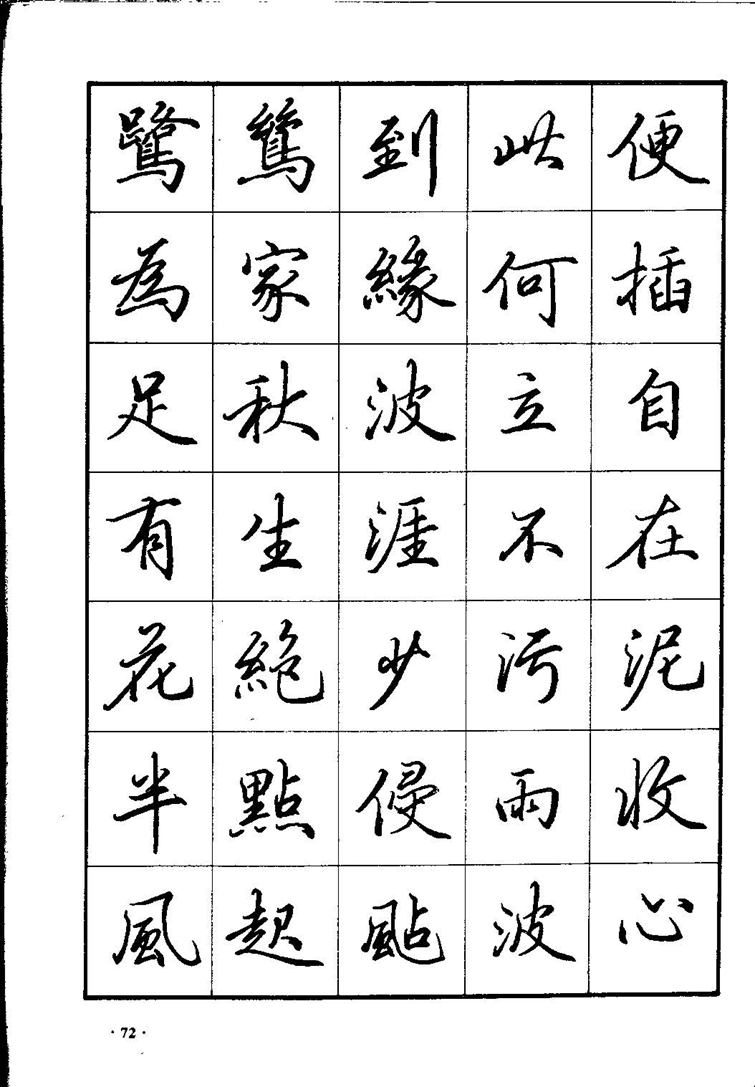 鷺鷥到此便
為家緣何插
足秋波立自
有生涯不在
花絕少污泥
半點侵雨收
風起颭波心
·72·